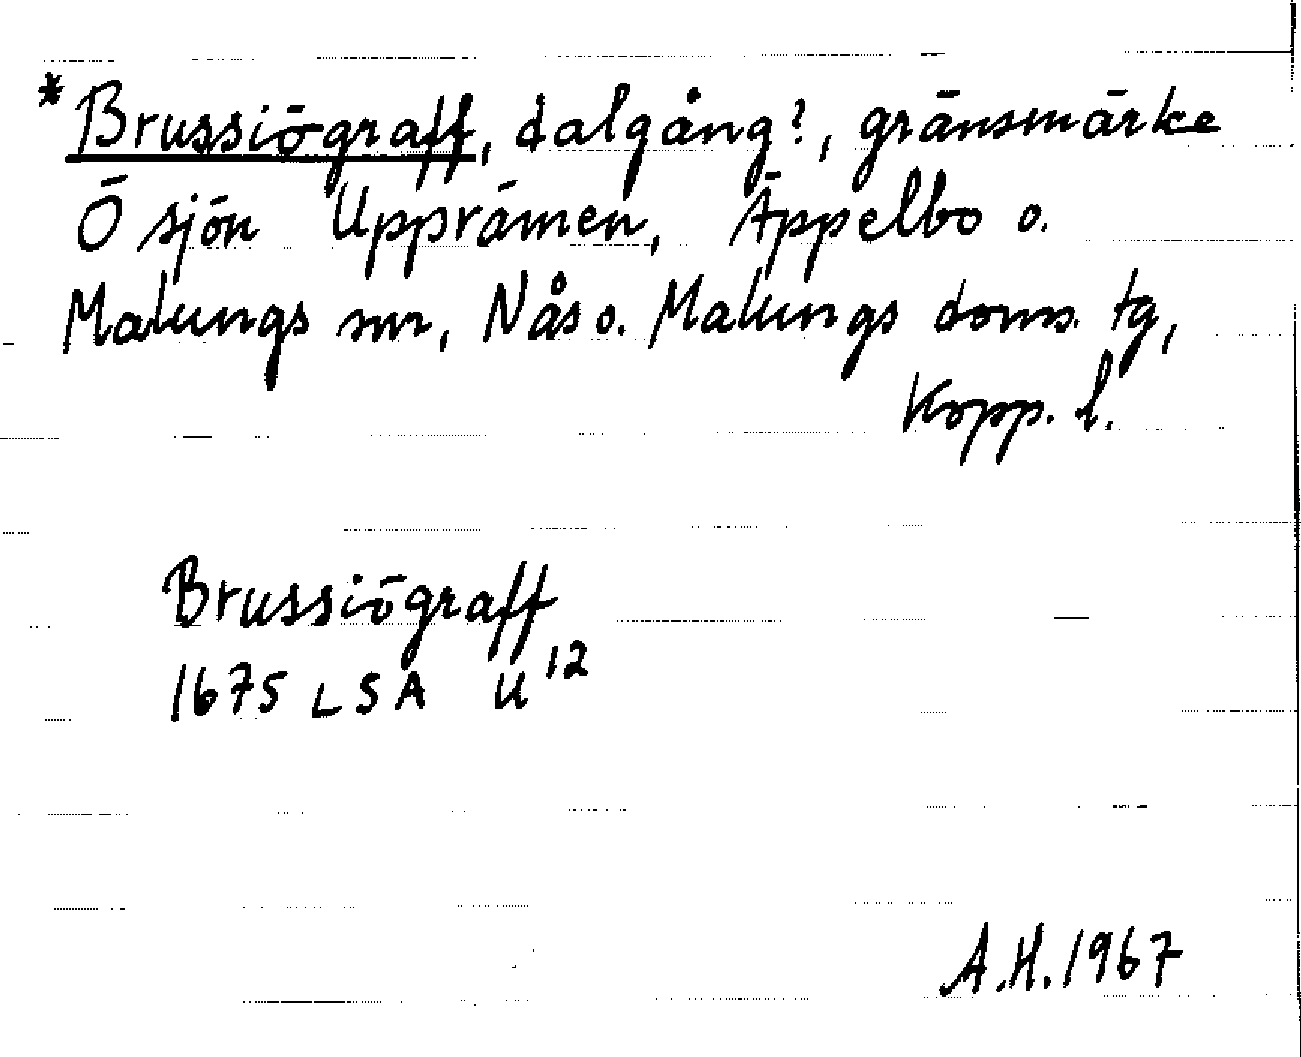 *Brussiögraff, dalgång?, gränsmärke
Ö sjön Upprämen, Äppelbo o.
Malungs snr, Nås o. Malungs doms. tg,
Kopp. l.
Brussiögraff
1675 LSA U 12
A.H. 1967